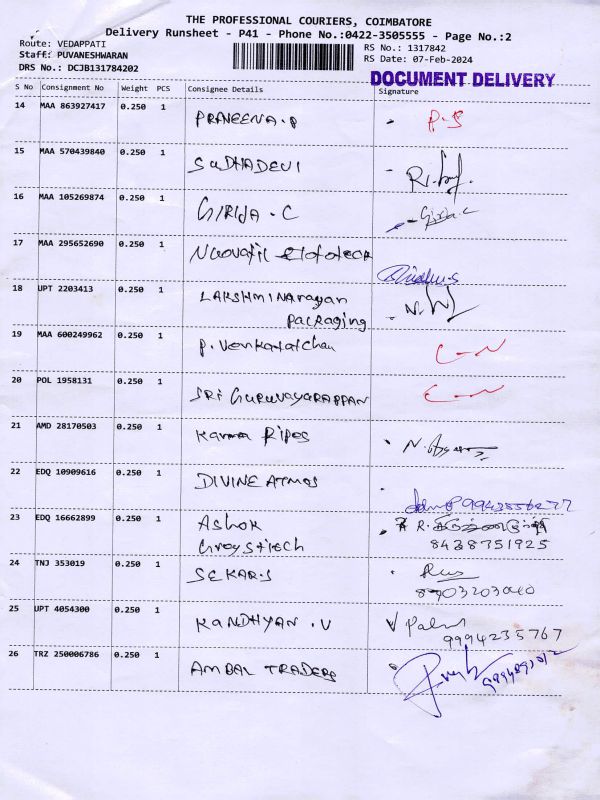 THE PROFESSIONAL COURIERS, COIMBATORE
Delivery Runsheet - P41 - Phone No.:0422-3505555 - Page No.:2
Route: VEDAPPATI
RS No.: 1317842
Staff: PUVANESHWARAN
RS Date: 07-Feb-2024
DRS No.: DCJB131784202
DOCUMENT DELIVERY
S No Consignment No Weight PCS Consignee Details Signature
14 MAA 863927417 0.250 1 PRAVEENA.P P.S
15 MAA 570439840 0.250 1 SUDHADEVI
16 MAA 105269874 0.250 1 GIRIJA.C Girija.c
17 MAA 295652690 0.250 1
18 UPT 2203413 0.250 1 LAKSHMI Narayan
Packaging
19 MAA 600249962 0.250 1 P. Venkatachan
20 POL 1958131 0.250 1 SRI GURUVAYARAPPAN
21 AMD 28170503 0.250 1 Karma Pipes
22 EDQ 10909616 0.250 1 DIVINE ATMOS
23 EDQ 16662899 0.250 1 Ashok
8438751925
24 TNJ 353019 0.250 1 SEKAR.S
8903203040
25 UPT 4054300 0.250 1 KANDHYAN.V
9994235767
26 TRZ 250006786 0.250 1 AMBAL TRADERS